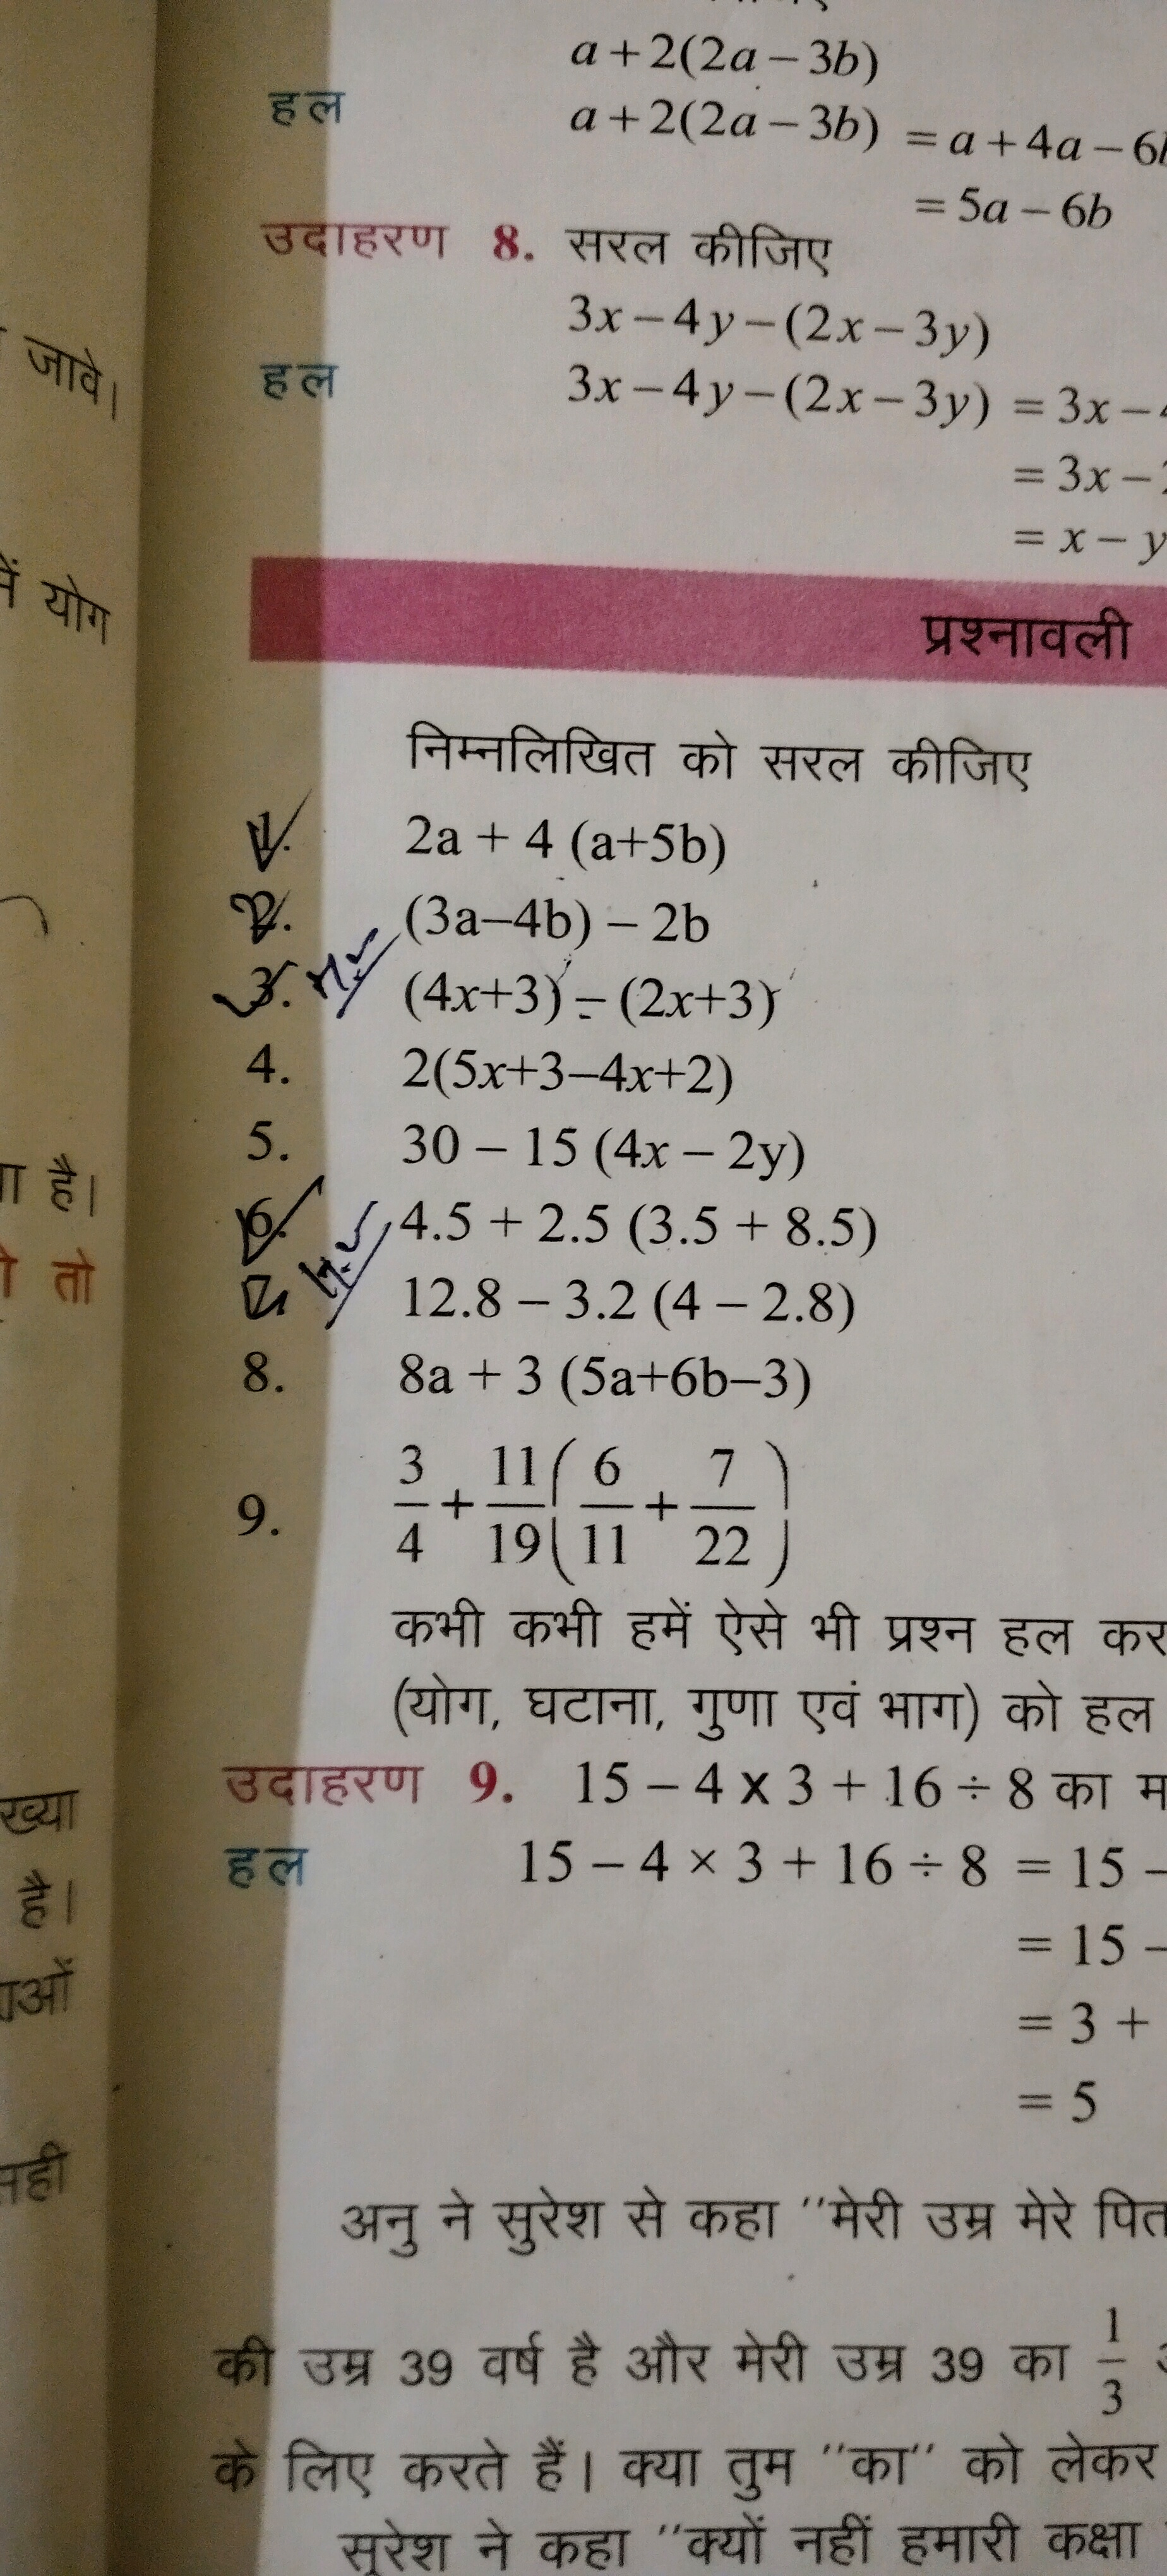 a+2(2a–3b)
हल a+2(2a–3b) = a+4a–6
= 5a–6b
उदाहरण 8. सरल कीजिए
3x–4y–(2x–3y)
हल 3x–4y–(2x–3y) = 3x–
= 3x–
= x–y
जावे।
में योग
प्रश्नावली
निम्नलिखित को सरल कीजिए
1. 2a + 4 (a+5b)
2. (3a–4b) – 2b
3. (4x+3) – (2x+3)
4. 2(5x+3–4x+2)
5. 30 – 15 (4x – 2y)
6. 4.5 + 2.5 (3.5 + 8.5)
12.8 – 3.2 (4 – 2.8)
8. 8a + 3 (5a+6b–3)
9. 3/4 + 11/19 (6/11 + 7/22)
है।
तो
कभी कभी हमें ऐसे भी प्रश्न हल कर
(योग, घटाना, गुणा एवं भाग) को हल
उदाहरण 9. 15 – 4 x 3 + 16 ÷ 8 का म
हल 15 – 4 × 3 + 16 ÷ 8 = 15 –
= 15 –
= 3 +
= 5
ख्या
है।
ाओं
अनु ने सुरेश से कहा "मेरी उम्र मेरे पित
की उम्र 39 वर्ष है और मेरी उम्र 39 का 1/3
के लिए करते हैं। क्या तुम "का" को लेकर
सुरेश ने कहा "क्यों नहीं हमारी कक्षा